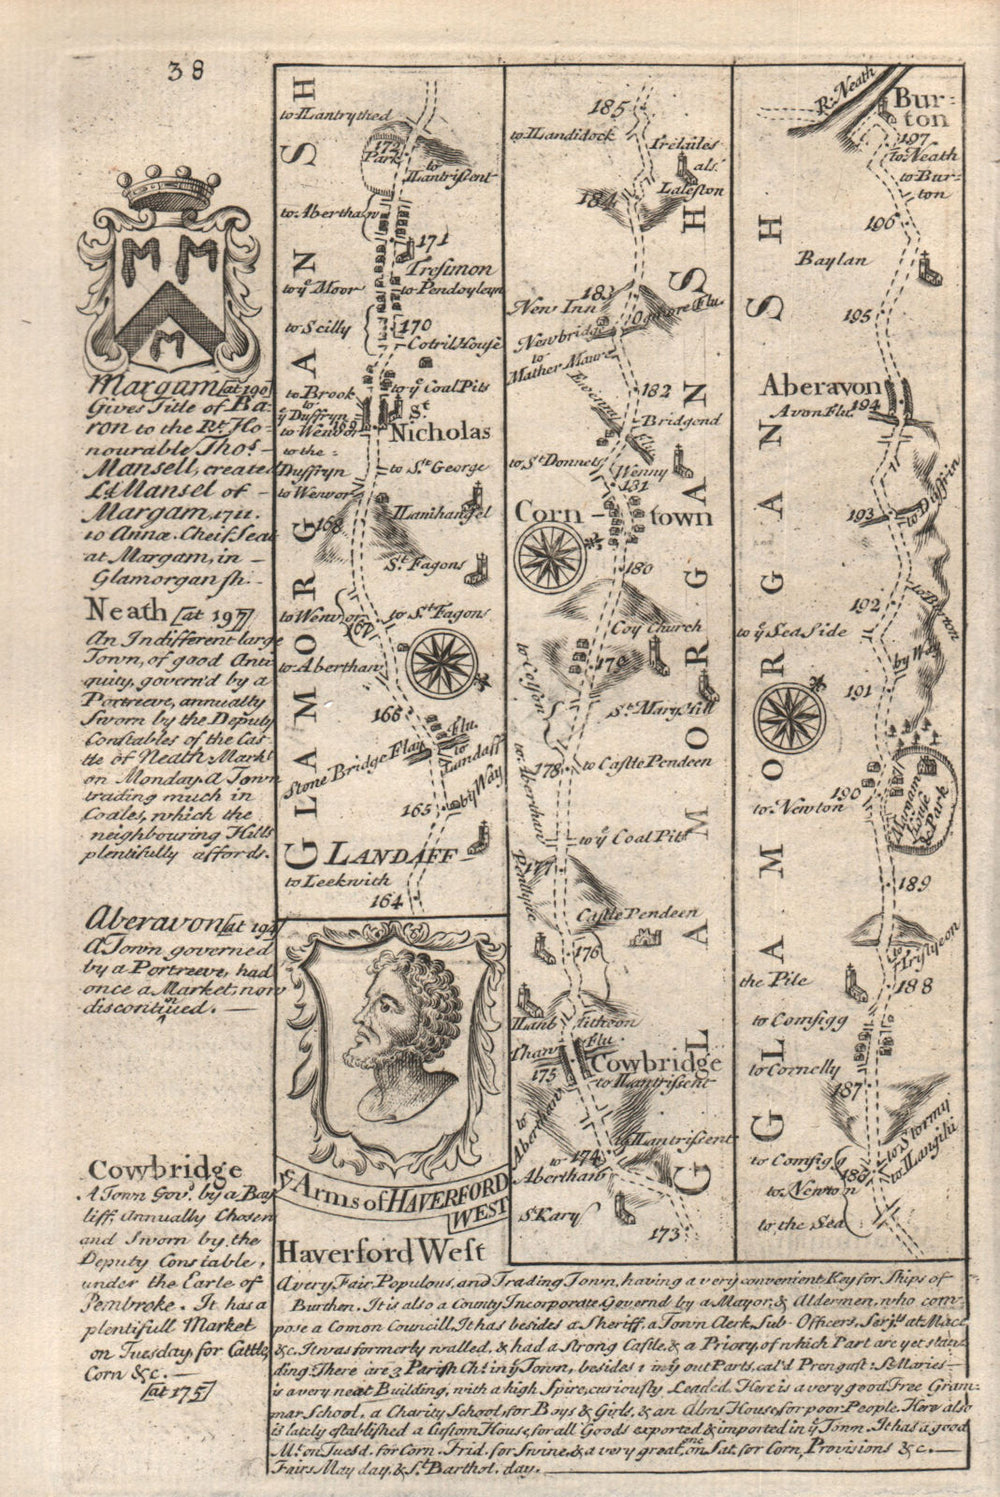 38
Margam [at 190]
Gives Title of Ba-
ron to the Rt. Ho-
nourable Thos. -
Mansell, created
Ld. Mansel of -
Margam, 1711.
10 Annæ. Cheif Seat
at Margam, in -
Glamorgansh. -
Neath [at 197]
An Indifferent large
Town, of good Anti
quity, govern'd by a
Portreeve, annually
Sworn by the Deputy
Constables of the Cas-
tle of Neath. Markt.
on Monday. A Town
trading much in
Coales, which the
neighbouring Hills
plentifully affords.
Aberavon [at 194]
A Town governed
by a Portreeve, had
once a Market, now
discontinued. -
Cowbridge
A Town Gov'd. by a Bay
liff, Annually Chosen
and Sworn by the
Deputy Constable,
under the Earle of
Pembroke. It has a
plentifull Market
on Tuesday, for Cattle,
Corn &c. -
[at 175]
GLAMORGANSH
to Llantrythed
172
Park
to
Llantrissent
to Aberthan
171
Tresimon
to ye Moor
to Pendoyleyn
to Scilly
170
Cotril House
to Brook
to ye Coal Pits
to
ye Duffryn
St.
169
to Wenvor
Nicholas
to the -
Duffryn
to St. George
to Wenvor
Llanihangel
168
St. Fagons
to Wenvor
to St. Fagons
to Aberthan
166
Flu.
to
Landaff
Stone Bridge Elay
by Way
165
LANDAFF
to Leekwith
164
ye Arms of HAVERFORD
WEST
GLAMORGANSH
185
to Llandidock
Trelailes
als.
Laleston
184
183
New Inn
Ogmore Flu.
Newbridge
to
Mather Mawr
182
Ewenny
Flu.
Bridgend
to St. Donnets
Wenny
181
Corn - town
180
Coy Church
179
to Colson
St. Mary Hill
178
to Castle Pendeen
to Aberthan
to ye Coal Pits
177
Penllyne
Castle Pendeen
176
Llanb lithoon
Than Flu.
175
Cowbridge
to Llantrissent
to
Aberthan
to Llantrissent
174
to
Aberthan
St. Kary
173
GLAMORGANSH
R. Neath
Bur-
ton
197
to Neath
to Bur-
ton
196
Baylan
195
Aberavon
Avon Flu. 194
to Duffrin
193
192
to Burton
to ye Sea Side
by Way
191
190
to Newton
Margam
House
& Park
189
to
Tristyeon
the Pile
188
to Comsigg
to Cornelly
187
to Stormy
to Comsigg
to Langihi
186
to Newton
to the Sea
Haverford West
A very Fair, Populous, and Trading Town, having a very convenient Key for Ships of
Burthen. It is also a County Incorporate, Governd by a Mayor, & Aldermen, who com-
pose a Comon Councill. It has besides a Sheriff, a Town Clerk, Sub - Officers, Serj.ts at Mace
&c. It was formerly walled, & had a Strong Castle, & a Priory, of which Part are yet stan-
ding. There are 3 Parish Chs. in ye Town, besides 1 in ye out Parts, cal'd Prengast: St. Maries -
is a very neat Building, with a high Spire, curiously Leaded. Here is a very good Free Gram-
mar School, a Charity School, for Boys & Girls, & an Alms House, for poor People. Here also
is lately established a Custom House, for all Goods exported & imported in ye Town. It has a good
Mt. on Tuesd. for Corn. Frid. for Swine, & a very great one on Sat. for Corn, Provisions &c. -
Fairs May day, & St. Barthol. day. -